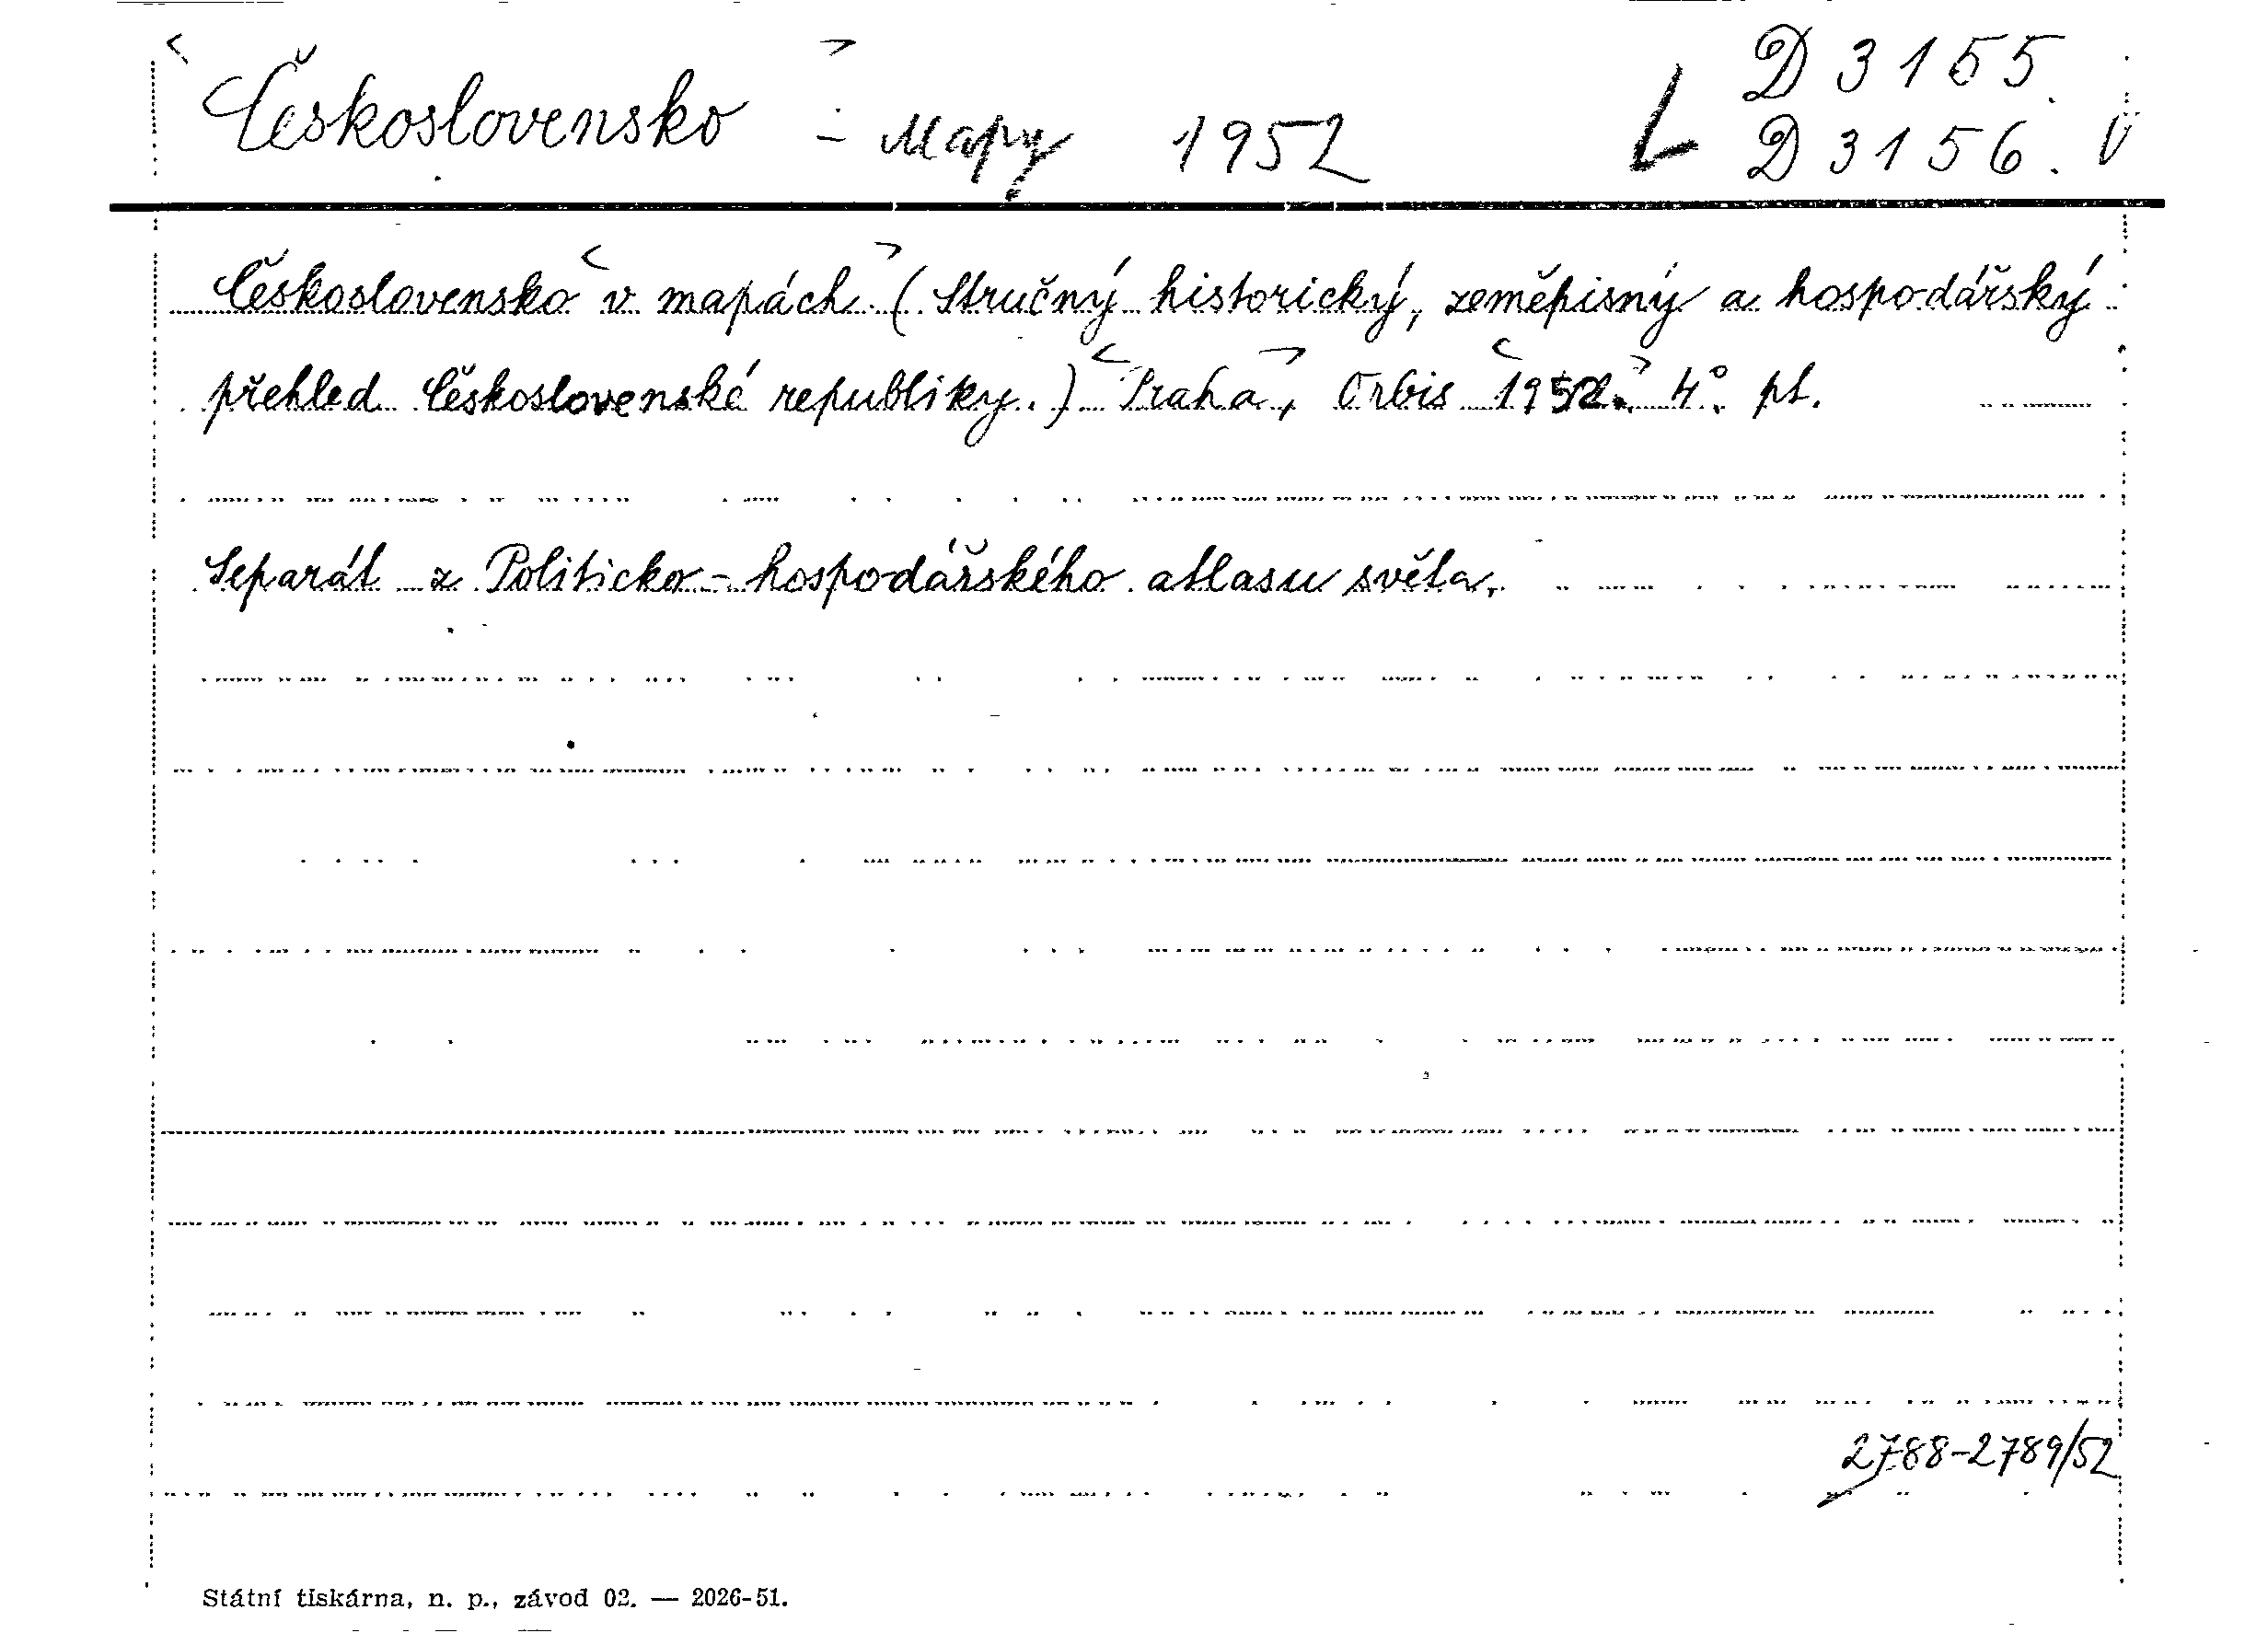 Československo - Mapy 1952 D 3155.
D 3156.
Československo v mapách. (Stručný historický, zeměpisný a hospodářský
přehled Československé republiky.) Praha, Orbis 1952. 4° pt.
Separát z Politicko-hospodářského atlasu světa.
2788-2789/52
Státní tiskárna, n. p., závod 02. — 2026-51.